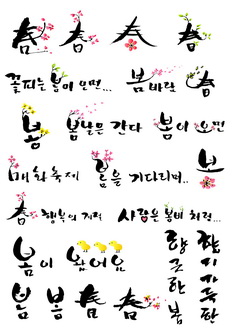 춤 춤 춤 춤
꽃피는 봄이 오면... 봄바람 춤
봄 봄날은 간다 봄이 오면
매화축제 봄을 기다리며.. 봄
춤 행복의 계절 사랑은 봄비처럼...
봄이 왔어요
봄 봄 춤 춤
향긋한 봄
향기가득한